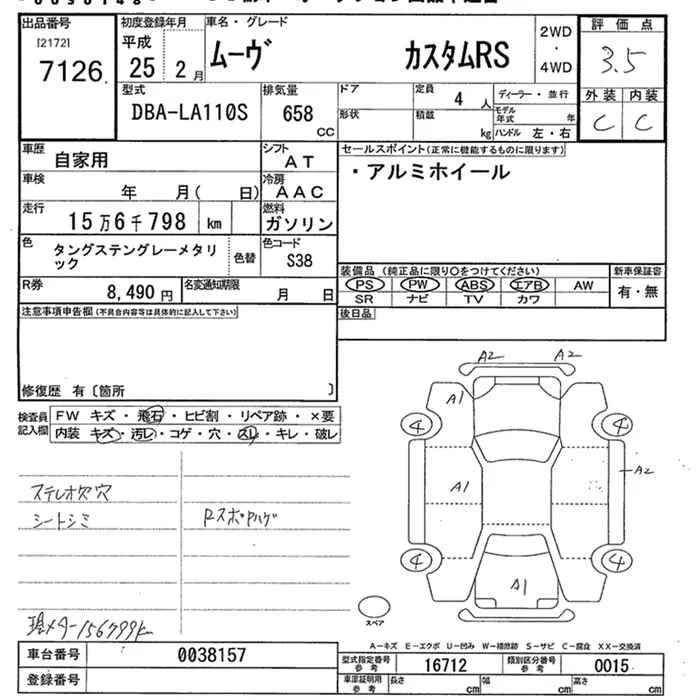 出品番号
[2172]
7126
初度登録年月
平成
25 2月
車名・グレード
ムーヴ カスタムRS
2WD
・
4WD
評価点
3.5
外装 内装
C C
型式
DBA-LA110S
排気量
658
CC
ドア
形状
定員
4人
積載
kg
ディーラー・並行
モデル年式 年
ハンドル 左・右
車歴
自家用
シフト
AT
車検
年 月( 日)
冷房
AAC
走行
15万6千798 km
燃料
ガソリン
色
タングステングレーメタリ
ック
色替
色コード
S38
R券
8,490円
名変通知期限
月 日
セールスポイント(正常に機能するものに限ります)
・アルミホイール
装備品(純正品に限り○をつけてください)
新車保証書
PS PW ABS エアB AW
有・無
SR ナビ TV カワ
後日品
注意事項申告欄(不具合内容等は具体的に記入して下さい)
修復歴 有〔箇所 〕
検査員
記入欄
FW キズ・飛石・ヒビ割・リペア跡・×要
内装 キズ・汚レ・コゲ・穴・スレ・キレ・破レ
ステレオ欠穴
シートシミ
Rスポイハゲ
現メーター156799k
A2 A2
A1
4 4
A1
A2
4 4
A1
スペア
A-キズ E-エクボ U-凹み W-補修跡 S-サビ C-腐食 XX-交換済
車台番号
0038157
登録番号
型式指定番号
参考
16712
類別区分番号
参考
0015
車庫証明用
参考
長さ cm
幅 cm
高さ cm